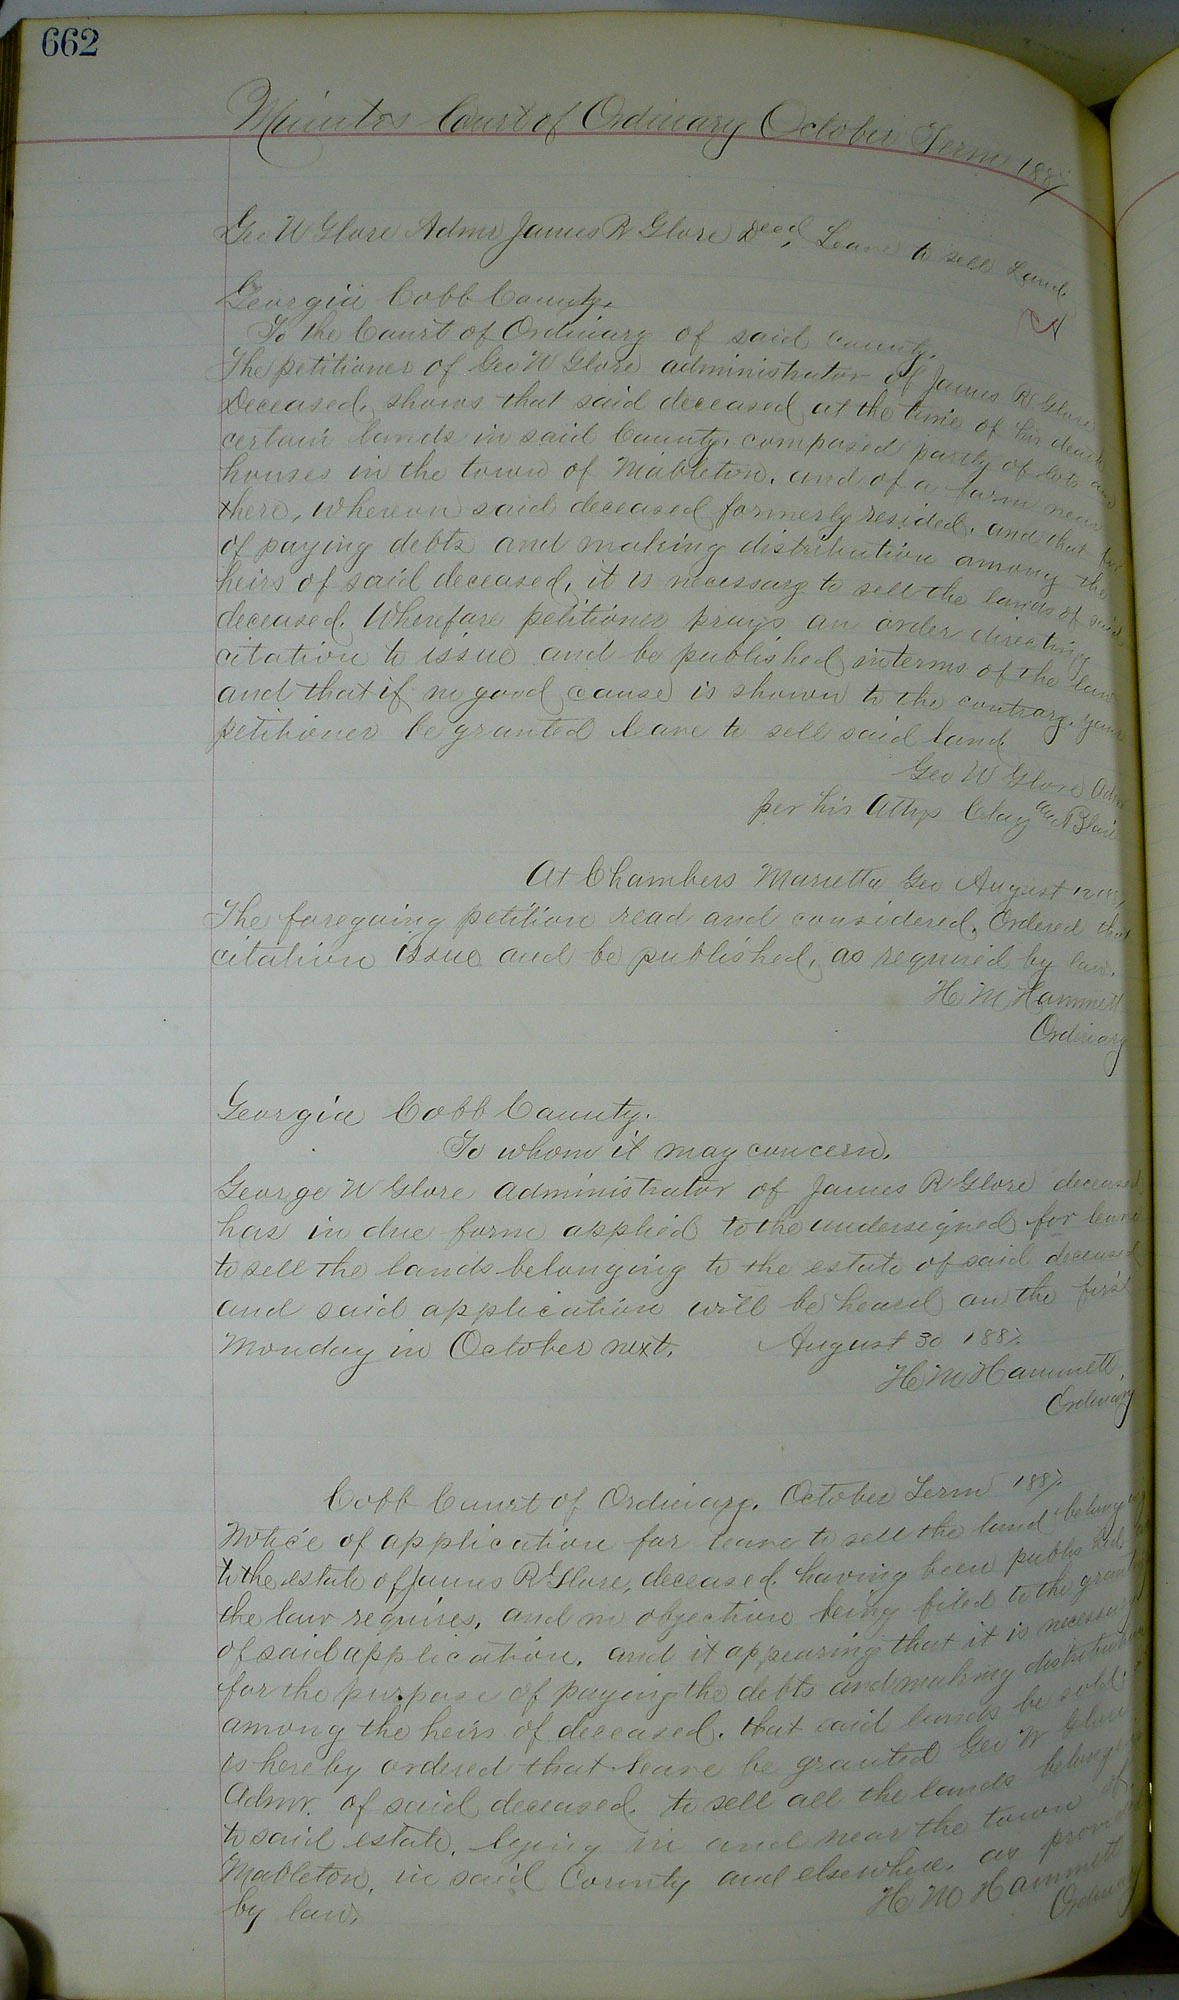 662
Minutes Court of Ordinary October Term 1887
Geo W Glore Admr James R Glore Decd, Leave to sell Land.
Georgia Cobb County,
To the Court of Ordinary of said County.
The petitioner of Geo W Glore administrator of James R Glore
Deceased, shows that said deceased at the time of his death
certain lands in said County, composed partly of lots and
houses in the town of Mableton, and of a farm near
there, whereon said deceased formerly resided, and that for
of paying debts and making distribution among the
heirs of said deceased, it is necessary to sell the lands of said
deceased. Wherefore petitioner prays an order directing
citation to issue and be published in terms of the law
and that if no good cause is shown to the contrary, your
petitioner be granted leave to sell said land.
Geo W Glore Adm
per his Attys Clay and Blair
At Chambers Marietta Geo August 12 188
The foregoing petition read and considered, Ordered that
citation issue and be published, as required by law.
H M Hammett
Ordinary
Georgia Cobb County.
To whom it may concern.
George W Glore administrator of James R Glore deceased
has in due form applied to the undersigned for leave
to sell the lands belonging to the estate of said deceased
and said application will be heard on the first
Monday in October next. August 30 1887.
H M Hammett,
Ordinary
Cobb Court of Ordinary. October Term 1887.
Notice of application for leave to sell the land belonging
to the estate of James R Glore, deceased, having been published as
the law requires, and no objection being filed to the granting
of said application, and it appearing that it is necessary
for the purpose of paying the debts and making distribution
among the heirs of deceased, that said lands be sold,
is hereby ordered that leave be granted Geo W Glore
Admr. of said deceased, to sell all the lands belonging
to said estate, lying in and near the town of
Mableton, in said County and elsewhere, as provided
by law. H M Hammett
Ordinary